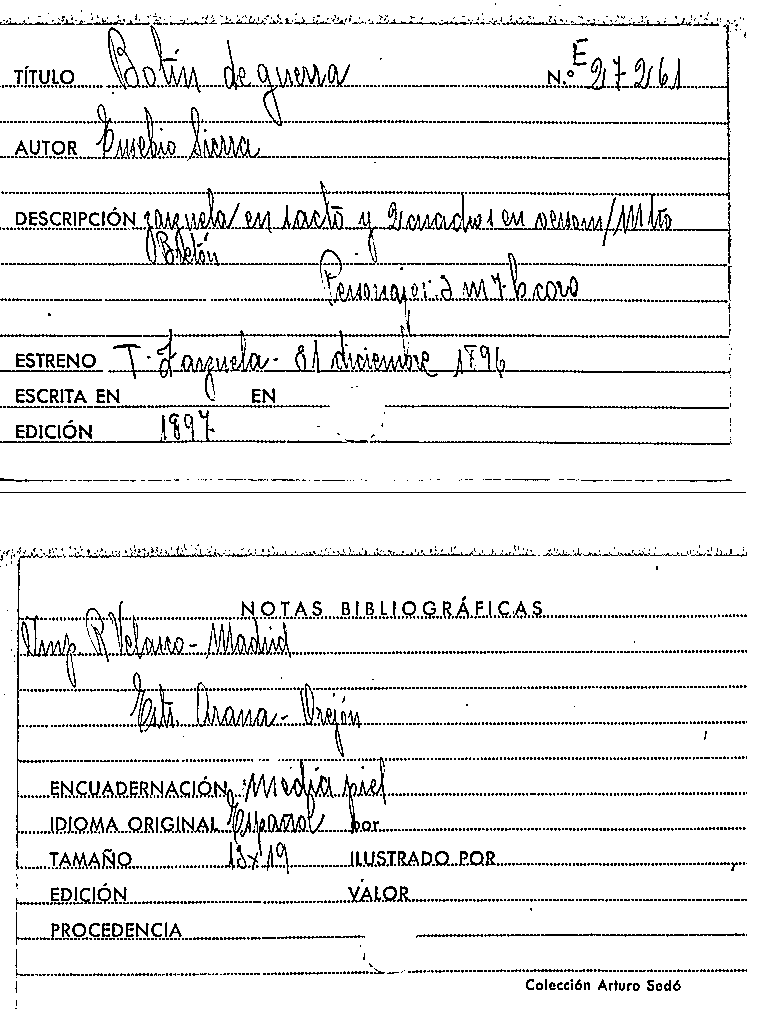 TÍTULO Botín de guerra N.º E 27261
AUTOR Eusebio Sierra
DESCRIPCIÓN zarzuela en 1 acto y 2 cuadros en verso m/ Mtro
Bretón
Personajes: 2 m 7 h coro
ESTRENO T. Zarzuela - 31 diciembre 1896
ESCRITA EN EN
EDICIÓN 1897
NOTAS BIBLIOGRÁFICAS
Imp R Velasco - Madrid
Estr. Arana - Orejón
ENCUADERNACIÓN Media piel
IDIOMA ORIGINAL Español por
TAMAÑO 13x19 ILUSTRADO POR
EDICIÓN VALOR
PROCEDENCIA
Colección Arturo Sedó